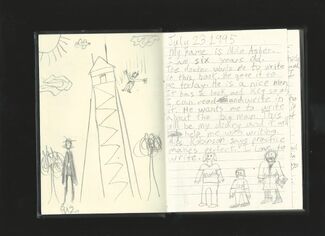 July 23 1995
My name is
I am six years old.
The doctor wants me to write
in this book. He gave it to
me today. He is a nice man.
It has a lock and key so only
I can read and write in
it. He wants me to write
about the big man. This
will be my diary and it will
help me with writing.
says practice
makes perfect. I love to
write.